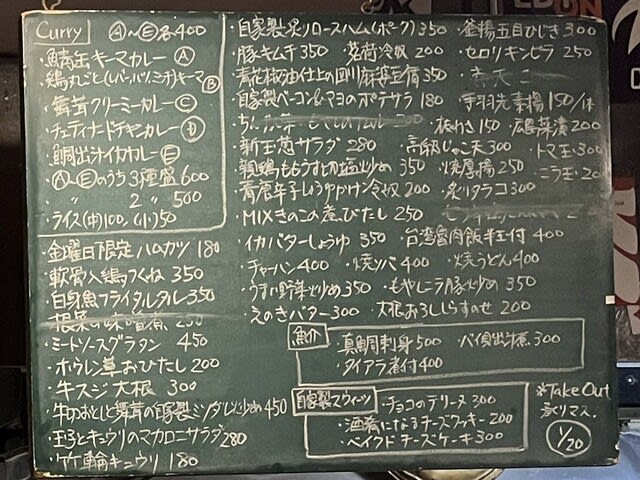 Curry Ⓐ〜Ⓔ各400
・鯖缶キーマカレー Ⓐ
・鶏丸ごと(レバ,ハツ,ミンチ)キーマ Ⓑ
・舞茸クリーミーカレー Ⓒ
・チェティナードチキンカレー Ⓓ
・鯛出汁イカカレー Ⓔ
・Ⓐ〜Ⓔのうち3種盛600
・ 〃 2 〃 500
・ライス(中)100, (小)50
・金曜日限定 ハムカツ 180
・軟骨入鶏つくね 350
・白身魚フライタルタル 350
・根菜の味噌煮 250
・ミートソースグラタン 450
・ホウレン草おひたし 200
・牛スジ大根 300
・玉子とキュウリのマカロニサラダ 280
・竹輪キュウリ 180
・自家製炙りロースハム(ポーク) 350 ・釜揚五目ひじき 300
・豚キムチ 350 ・茗荷冷奴 200 ・セロリキンピラ 250
・青花椒油仕上の四川麻婆豆腐 350
・自家製ベーコン&マヨのポテサラ 180 ・手羽先素揚 150/1本
・板わさ 150 ・広島菜漬 200
・新玉葱サラダ 280 ・高級じゃこ天 300 ・トマ玉・300
・親鶏ももうす切塩炒め 350 ・焼厚揚 250 ・ニラ玉・20
・青唐辛子しょうゆかけ冷奴 200 ・炙りタラコ 300
・MIXきのこの煮びたし 250
・イカバターしょうゆ 350 ・台湾魯肉飯半玉付 400
・チャーハン 400 ・焼ソバ 400 ・焼うどん 400
・うすい野菜炒め 350 ・もやしニラ豚炒め 350
・えのきバター 300 ・大根おろししらすのせ 200
魚介 ・真鯛刺身 500 ・バイ貝出汁煮 300
・タイアラ煮付 400
自家製スウィーツ ・チョコのテリーヌ 300
・酒肴になるチーズクッキー 200
・ベイクドチーズケーキ 300
※Take Out
承りマス
1/20